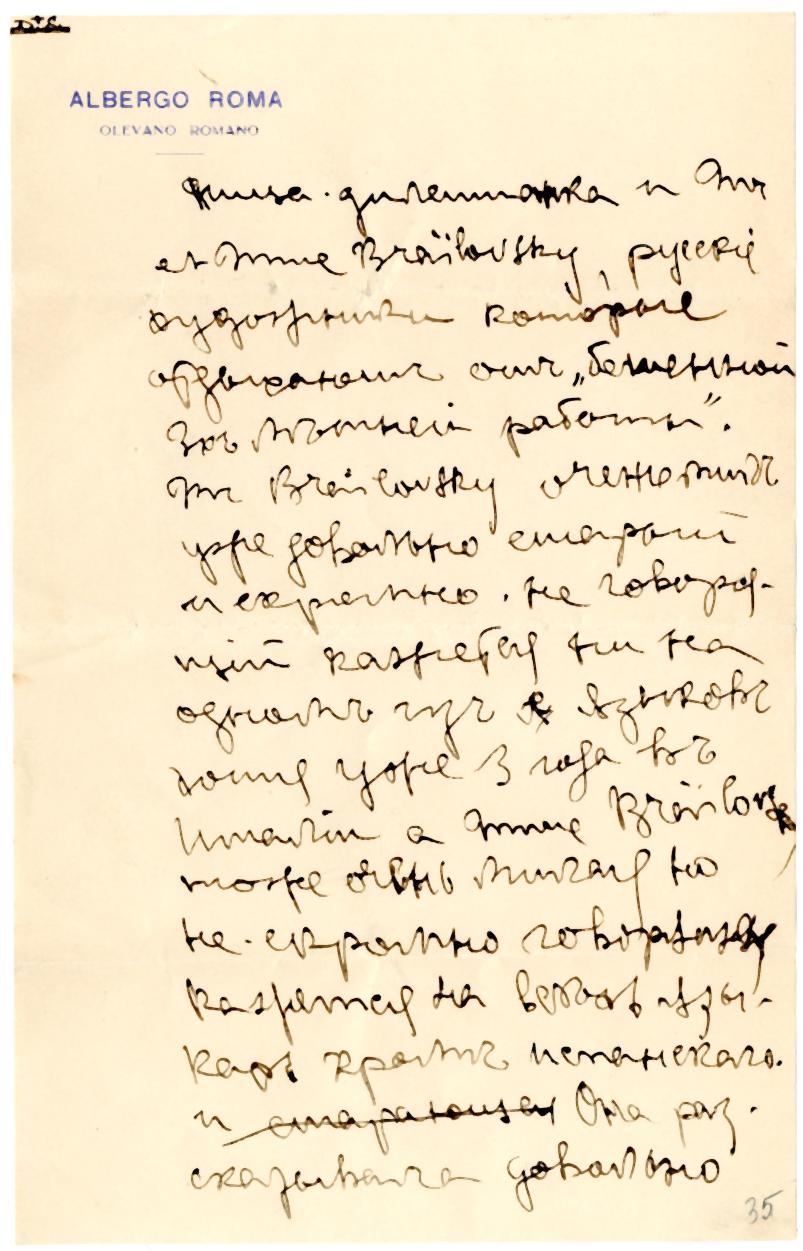 ALBERGO ROMA
OLEVANO ROMANO
ница-дилетантка и Mr
et Mme Braïlovsky, русскіе
художники которые
отдыхаютъ отъ „бешенной
3хъ лѣтней работы".
Mr Braïlovsky очень милъ
уже довольно старый
и скромно-не говоря-
щій кажется ни на
одномъ изъ языковъ
хотя уже 3 года въ
Италіи а Mme Braïlovsky
тоже очень милая но
не-скромно говорящая
кажется на всѣхъ язы-
кахъ кромѣ испанскаго.
и старающая Она раз-
сказывала довольно
35